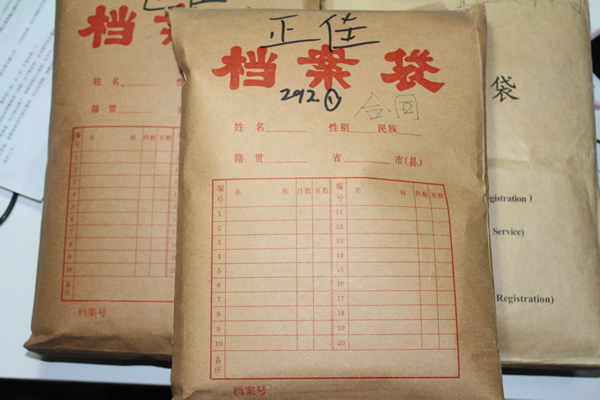 正佳
档案袋
292①
合同
姓名 性别 民族
籍贯 省 市(县)
编号 名 称 件数 页数 编号 名 称 件数 页数
1 11
2 12
3 13
4 14
5 15
6 16
7 17
8 18
9 19
10 20
备注
档案号
档案
姓名
籍贯
编号 名 称 件数 页数
备注
档案号
袋
gistration )
Service)
Registration)